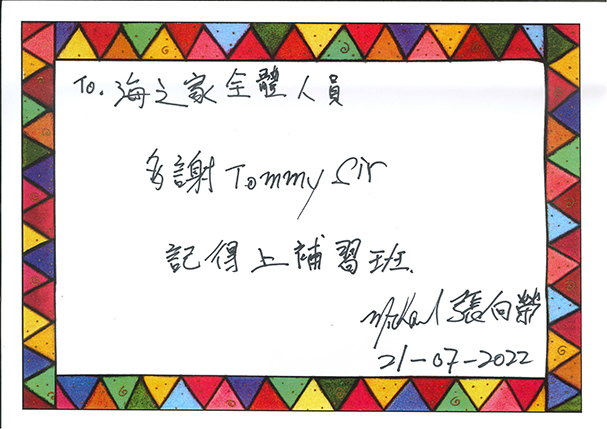 To. 海之家全體人員
多謝 Tommy Sir
記得上補習班.
Michael 張向榮
21-07-2022